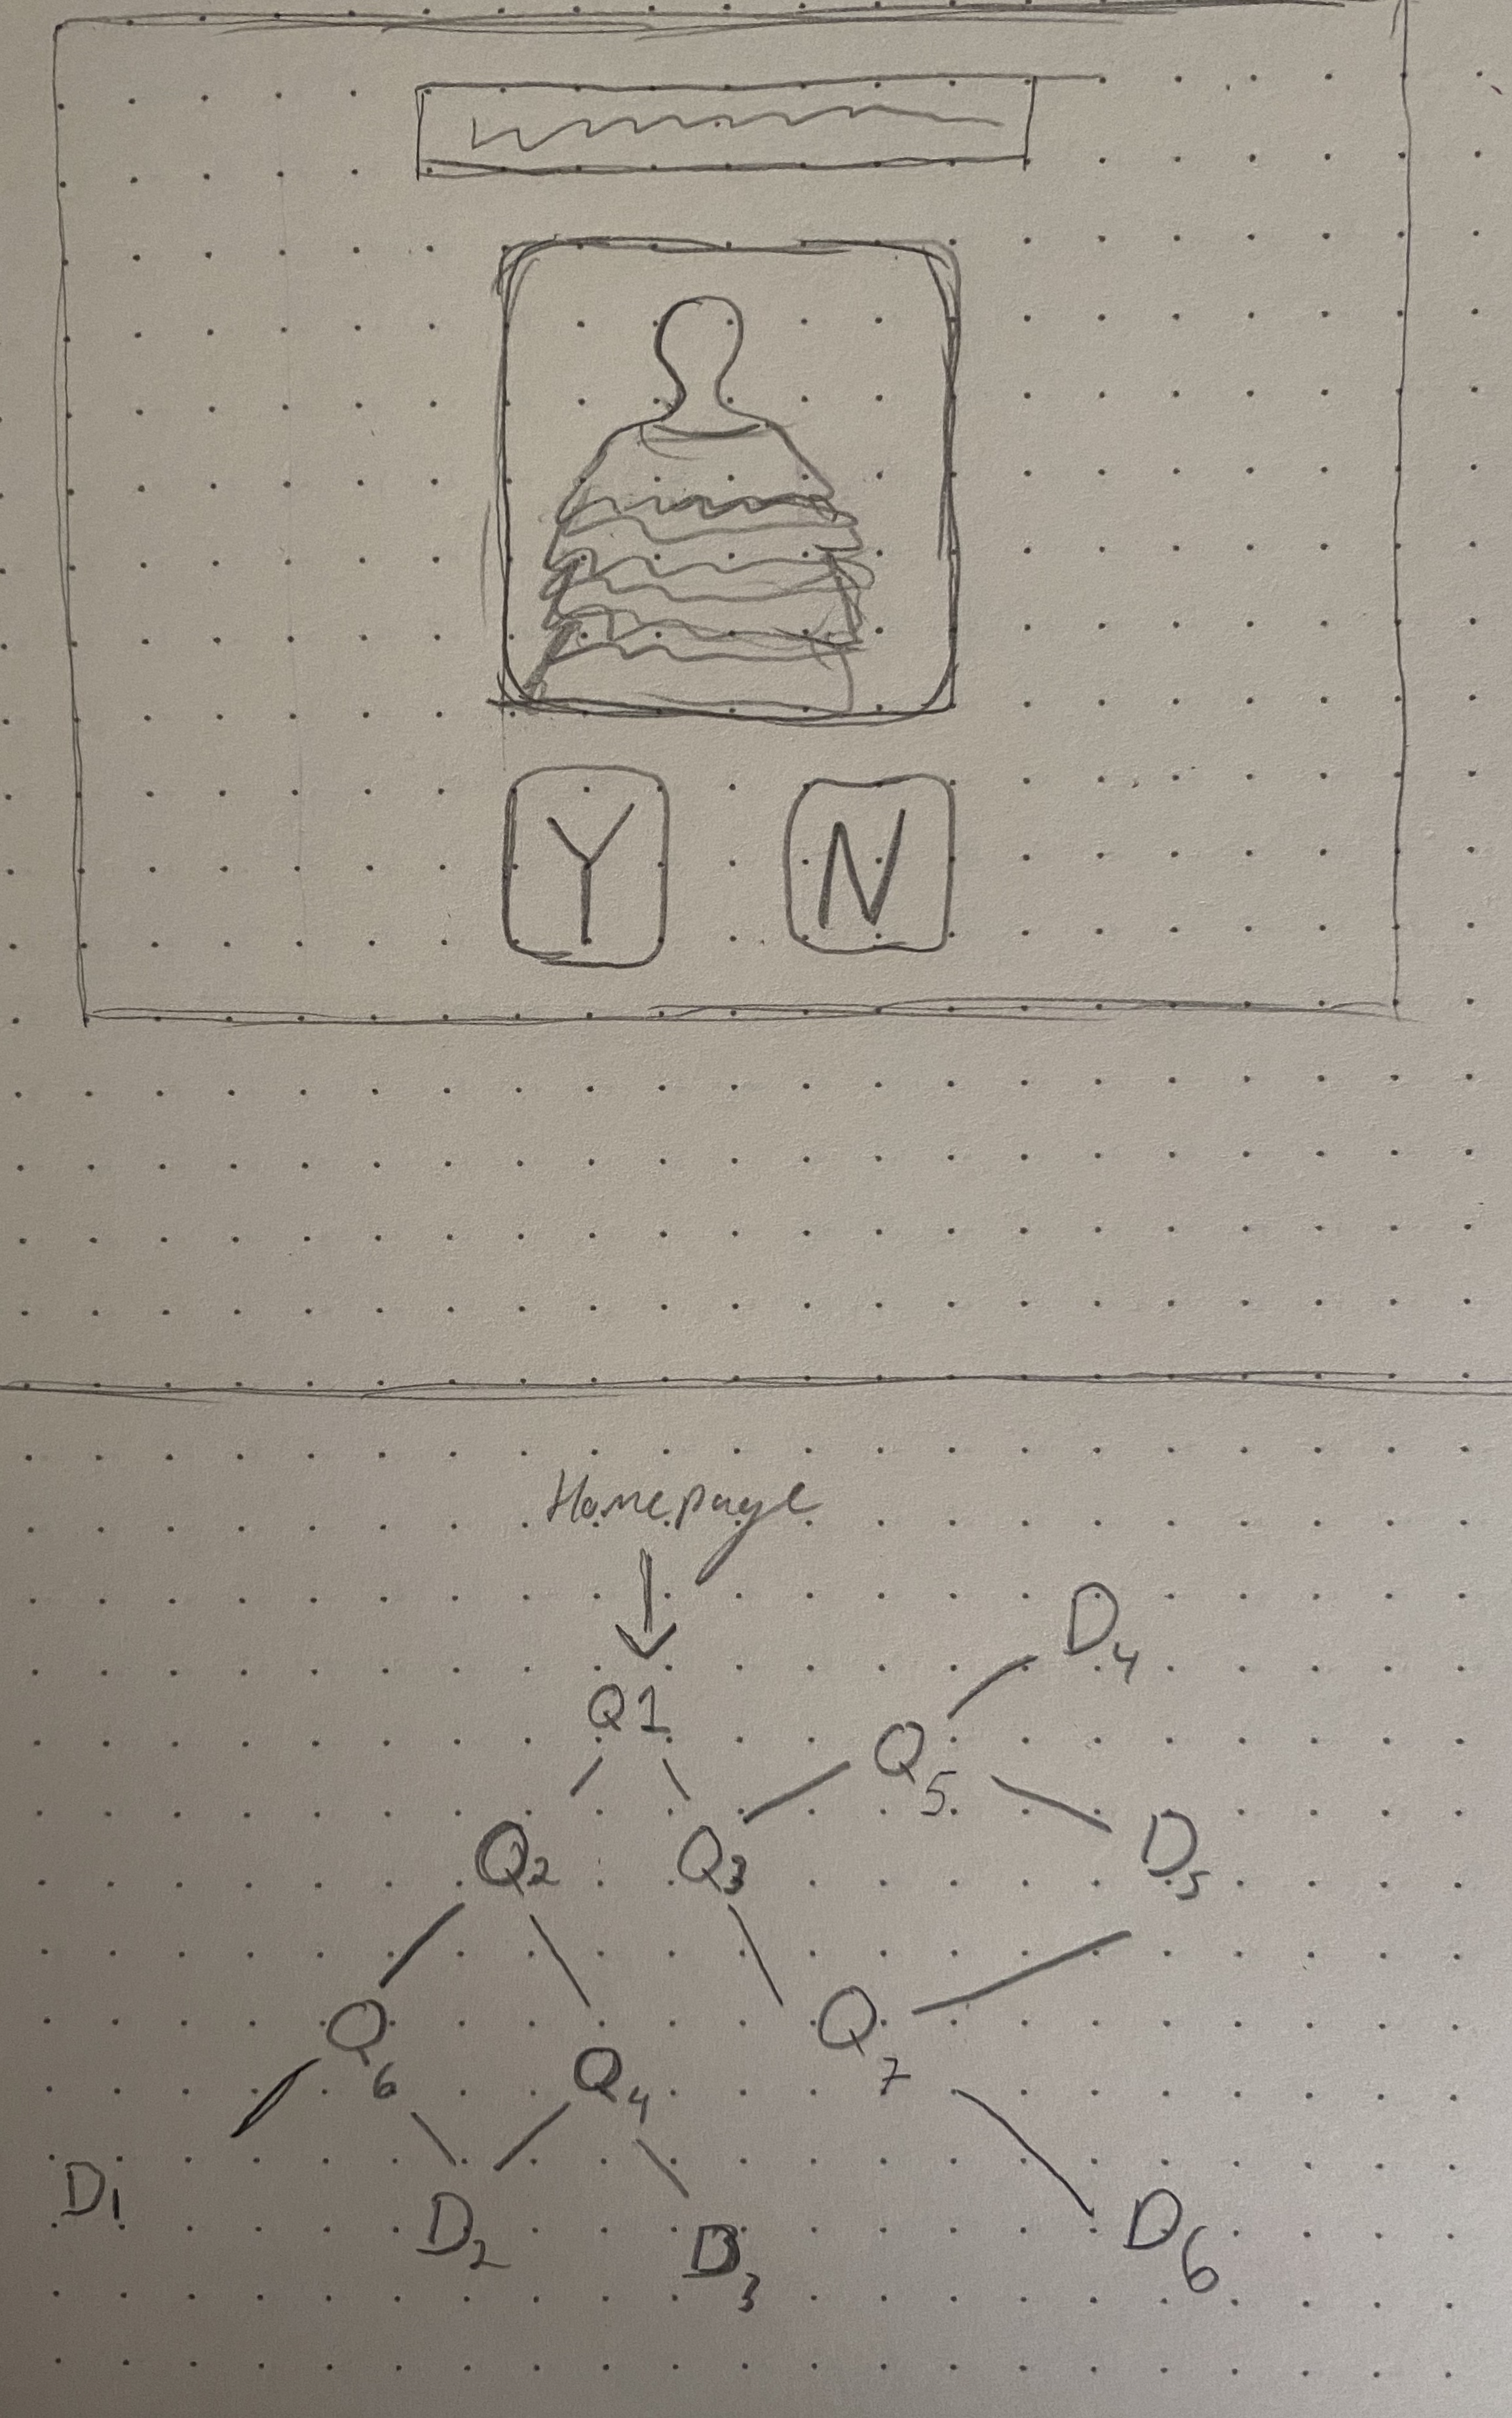 Y N
Homepage
D4
Q1
Q5
Q2 Q3 D5
Q6 Q4 Q7
D1 D2 D3 D6